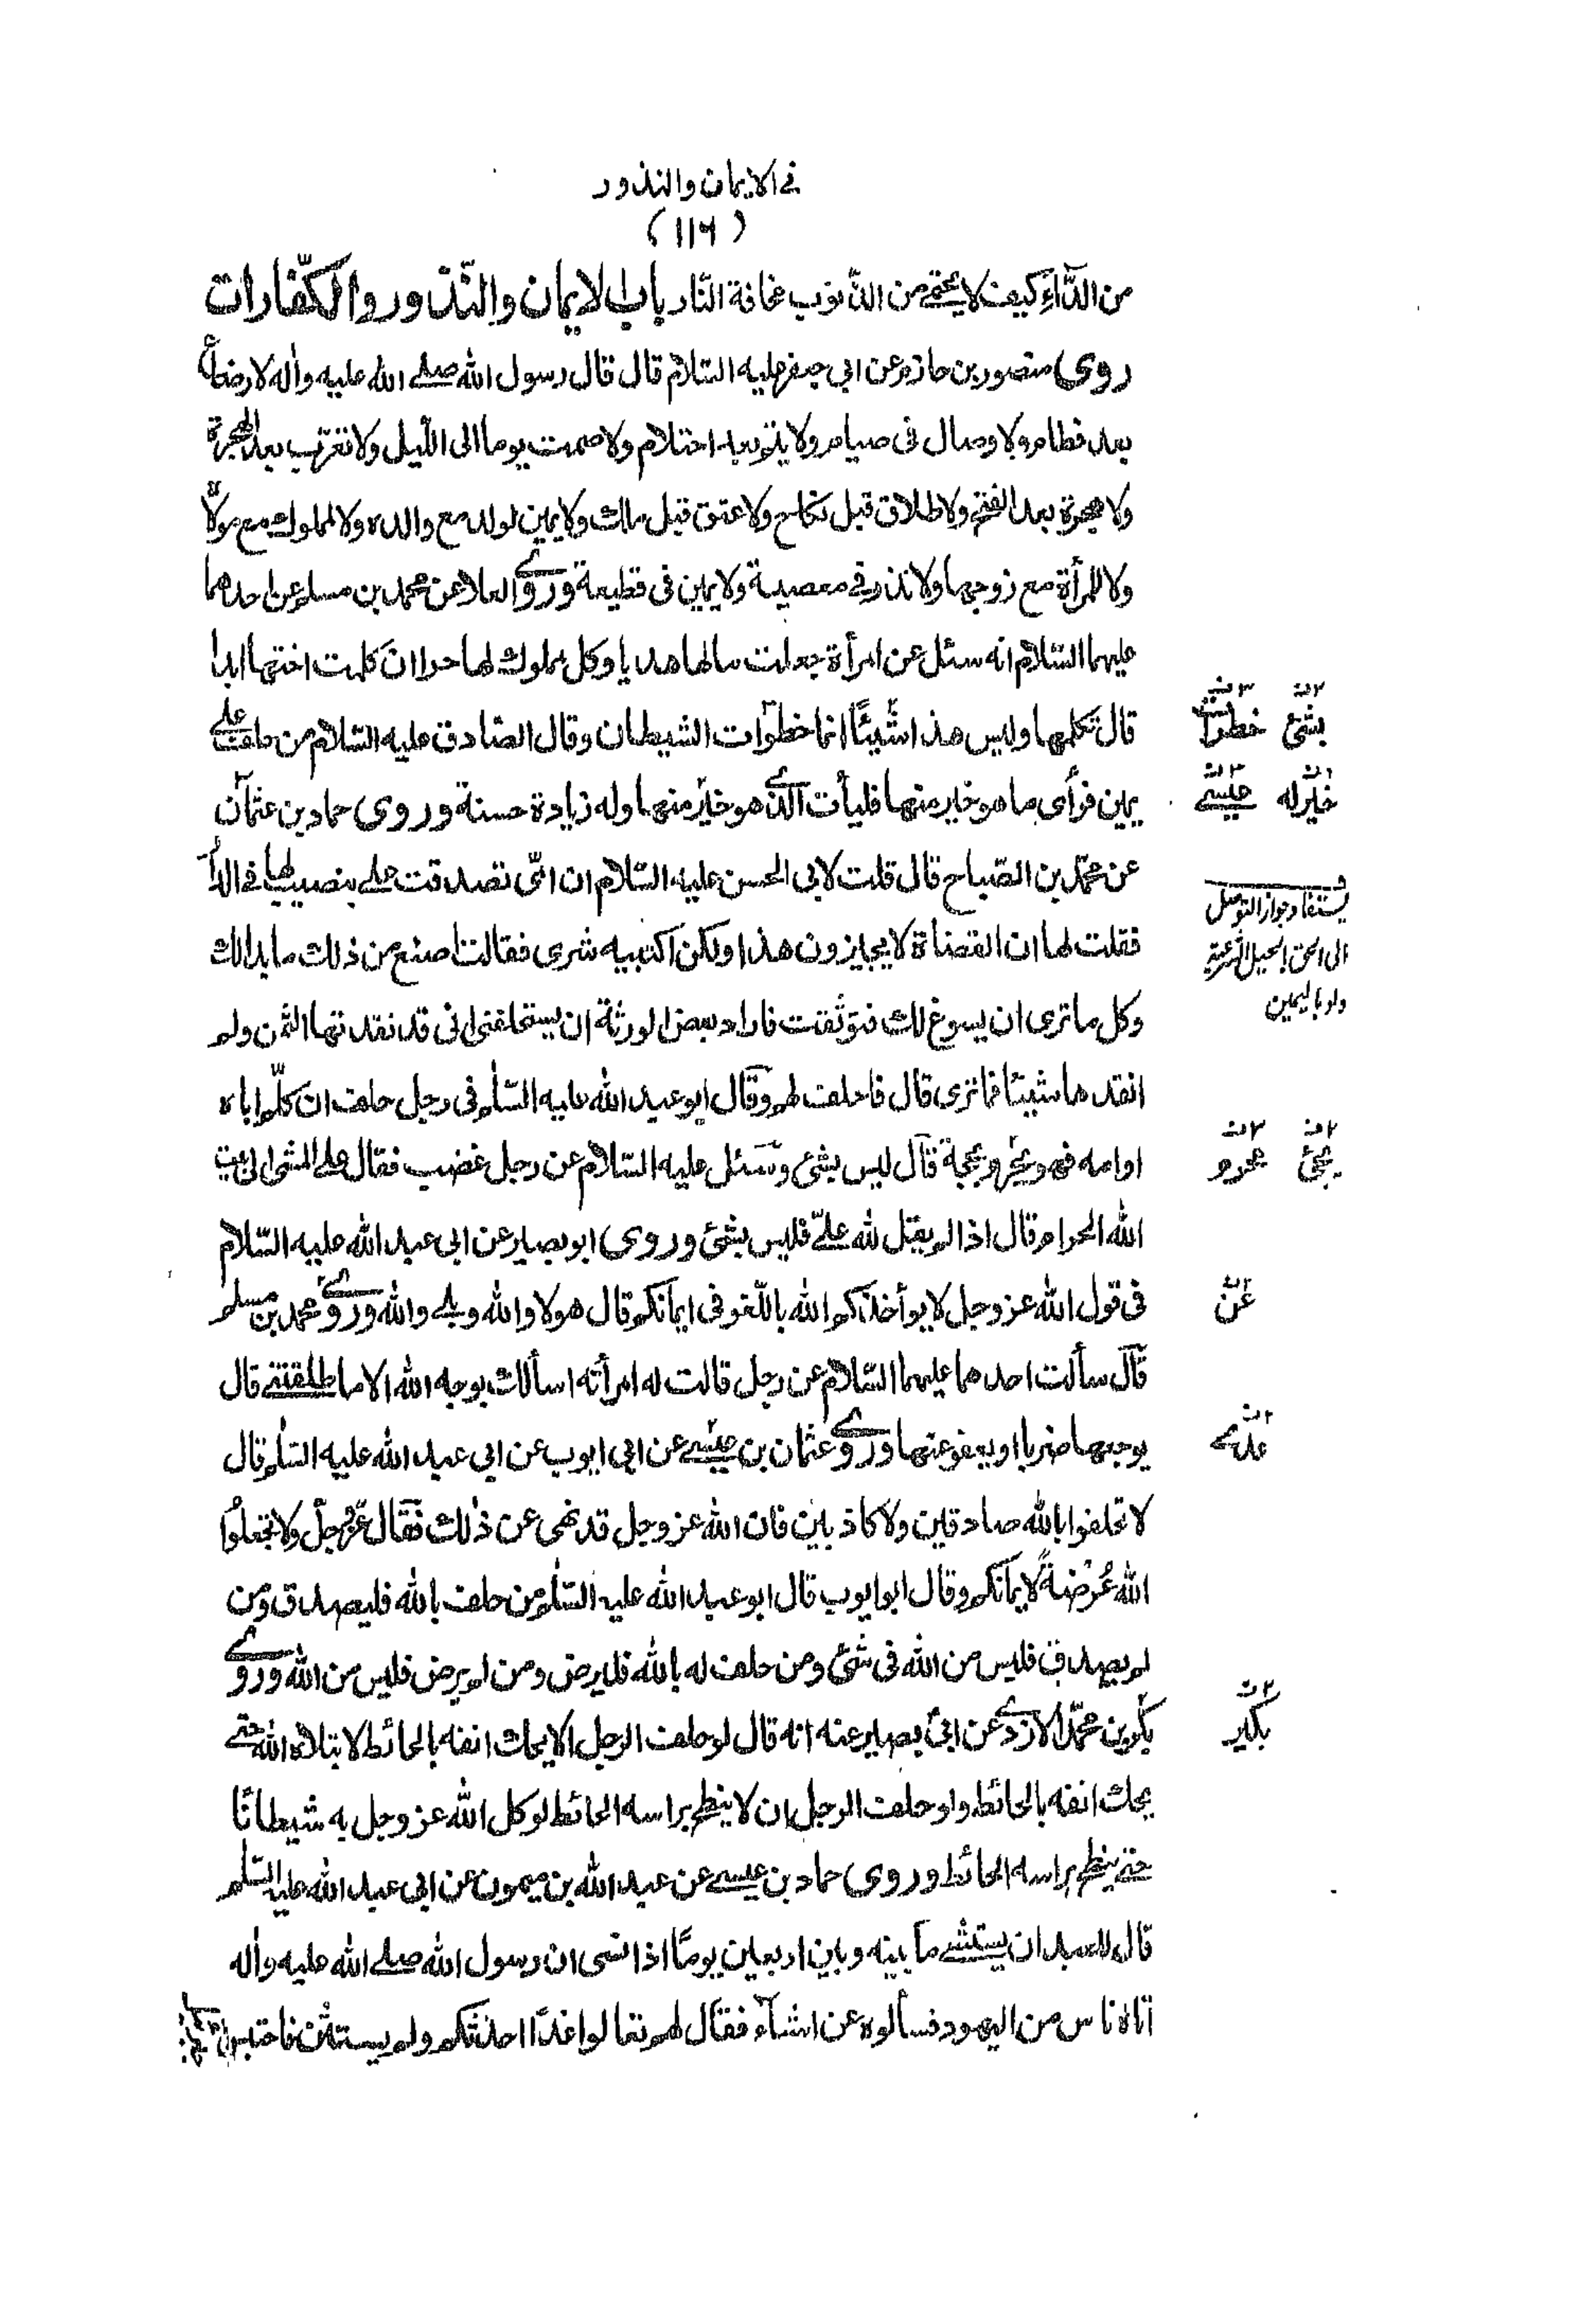 في الايمان والنذور
(١١٦)
من الدّاءِ كيف لا يحتمي من الذّنوب مخافة النّار باب الايمان والنّذور والكفّارات
روى منصور بن حازم عن ابي جعفر عليه السّلام قال قال رسول الله صلى الله عليه واله لا رضاع
بعد فطام ولا وصال في صيام ولا يتم بعد احتلام ولا صمت يوما الى اللّيل ولا تعرّب بعد الهجرة
ولا هجرة بعد الفتح ولا طلاق قبل نكاح ولا عتق قبل ملك ولا يمين لولد مع والده ولا لمملوك مع مولاه
ولا للمرأة مع زوجها ولا نذر في معصية ولا يمين في قطيعة وروى العلا عن محمد بن مسلم عن احدهما
عليهما السّلام انه سئل عن امرأة جعلت مالها هديا وكل مملوك لها حرا ان كلمت اختها ابدا
قال تكلمها وليس هذا شيئًا انما خطوات الشيطان وقال الصّادق عليه السّلام من حلف على
يمين فرأى ما هو خير منها فليأت الذي هو خير منها وله زيادة حسنة وروى حماد بن عثمان
عن محمّد بن الصّباح قال قلت لابي الحسن عليه السّلام ان امّي تصدقت علي بنصيب لها في الدار
فقلت لها ان القضاة لا يجيزون هذا ولكن اكتبيه شرى فقالت اصنع من ذلك ما بدا لك
وكل ما ترى ان يسوغ لك فتوثقت فاراد بعض الورثة ان يستحلفني اني قد نقدتها الثمن ولم
انقدها شيئا فما ترى قال فاحلف لهم وقال ابو عبد الله عليه السّلم في رجل حلف ان كلّم اباه
او امه فهو يحرم بحجة قال ليس بشئ وسئل عليه السّلام عن رجل غضب فقال علي المشي الى بيت
الله الحرام قال اذا لم يقل لله عليّ فليس بشئ وروى ابو بصير عن ابي عبد الله عليه السّلام
في قول الله عز وجل لا يؤاخذكم الله باللّغو في ايمانكم قال هو لا والله وبلى والله وروى محمد بن مسلم
قال سألت احدهما عليهما السّلام عن رجل قالت له امرأته اسألك بوجه الله الا ما طلقتني قال
يوجعها ضربا او يعفو عنها وروى عثمان بن عيسى عن ابي ايوب عن ابي عبد الله عليه السّلم قال
لا تحلفوا بالله صادقين ولا كاذبين فان الله عز وجل قد نهى عن ذلك فقال عزّ وجلّ ولا تجعلوا
الله عُرْضَةً لايمانكم وقال ابو ايوب قال ابو عبد الله عليه السّلم من حلف بالله فليصدق ومن
لم يصدق فليس من الله في شئ ومن حلف له بالله فليرض ومن لم يرض فليس من الله وروى
بكر بن محمّد الازدي عن ابي بصير عنه انه قال لو حلف الرجل الا يحك انفه بالحائط لابتلاه الله حتى
يحك انفه بالحائط ولو حلف الرجل ان لا ينطح براسه الحائط لوكل الله عز وجل به شيطانًا
حتى ينطح براسه الحائط وروى حماد بن عيسى عن عبد الله بن ميمون عن ابي عبد الله عليه السّلم
قال للعبد ان يستثني ما بينه وبين اربعين يومًا اذا نسي ان رسول الله صلى الله عليه واله
اتاه ناس من اليهود فسألوه عن اشياء فقال لهم تعالوا غدًا احدثكم ولم يستثن فاحتبس
بشئ
خير له عيسى
يستفاد جواز التوصل
الى الحق بالحيل الشرعية
ولو باليمين
عن
بكير